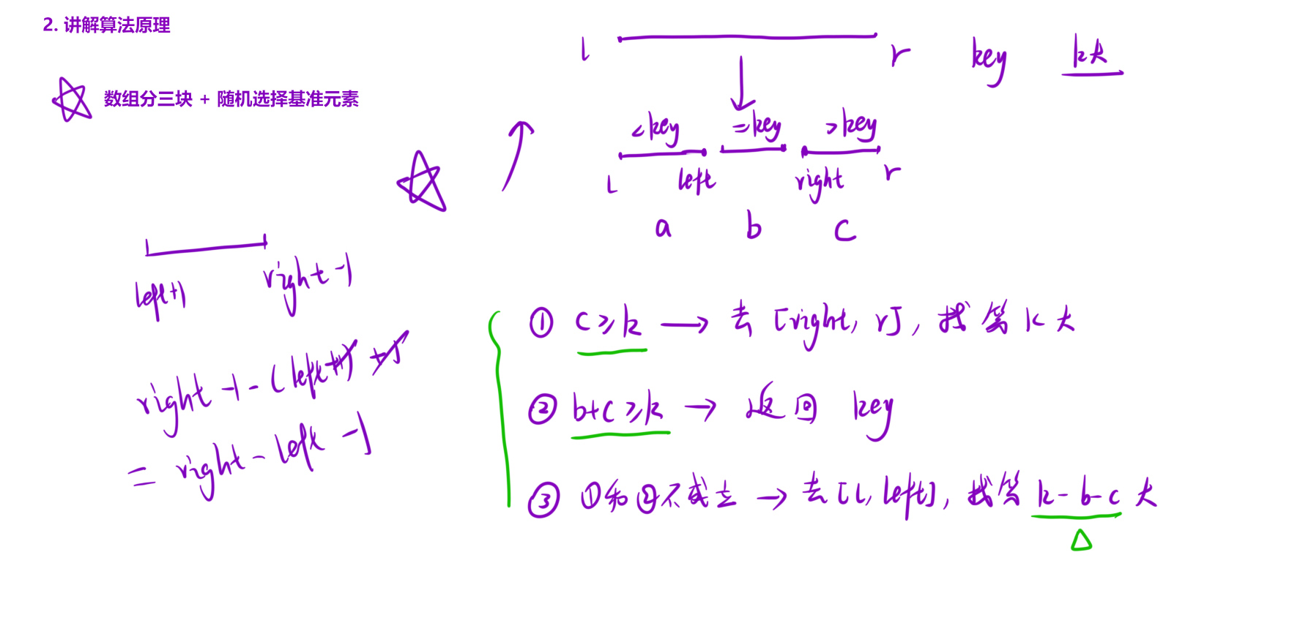 2. 讲解算法原理
数组分三块 + 随机选择基准元素
l r key k大
<key =key >key
l left right r
a b c
left+1 right-1
right-1-(left+1)+1
= right-left-1
① c≥k → 去 [right, r], 找第 k 大
② b+c≥k → 返回 key
③ ①和②不成立 → 去 [l, left], 找第 k-b-c 大